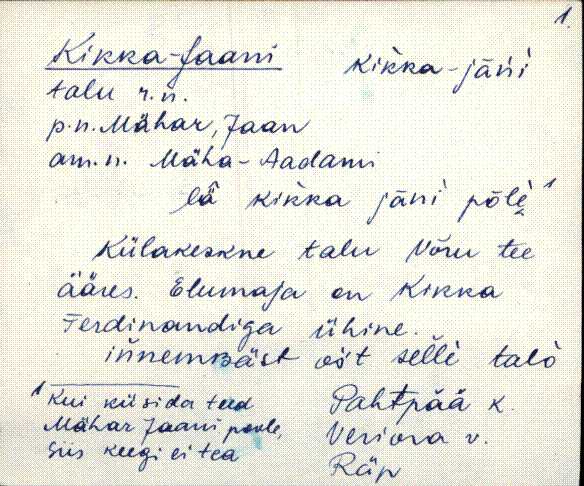 1.
Kikka-Jaani kìkka-jāńì
talu r.n.
p.n. Mähar, Jaan
am.n. Mäha-Aadami
lǟ kìkka jāńì pōlè¹
Külakeskne talu Võru tee
ääres. Elumaja on Kikka
Ferdinandiga ühine.
ińnembäst ośt sellè talò
¹ Kui küsida teed
Mähar Jaani poole,
siis keegi ei tea
Pahtpää k.
Veriora v.
Räp